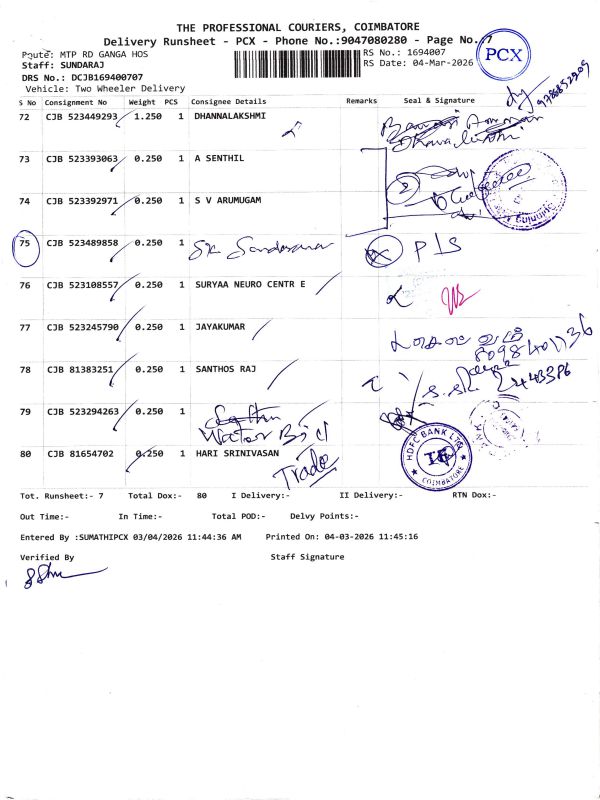 THE PROFESSIONAL COURIERS, COIMBATORE
Delivery Runsheet - PCX - Phone No.:9047080280 - Page No.:7
PCX
Route: MTP RD GANGA HOS
RS No.: 1694007
Staff: SUNDARAJ
RS Date: 04-Mar-2026
DRS No.: DCJB169400707
Vehicle: Two Wheeler Delivery
9788852909
S No Consignment No Weight PCS Consignee Details Remarks Seal & Signature
72 CJB 523449293 1.250 1 DHANNALAKSHMI
73 CJB 523393063 0.250 1 A SENTHIL
74 CJB 523392971 0.250 1 S V ARUMUGAM
75 CJB 523489858 0.250 1
76 CJB 523108557 0.250 1 SURYAA NEURO CENTR E
77 CJB 523245790 0.250 1 JAYAKUMAR
78 CJB 81383251 0.250 1 SANTHOS RAJ
79 CJB 523294263 0.250 1
80 CJB 81654702 0.250 1 HARI SRINIVASAN
Trade
HDFC BANK LTD
COIMBATORE
Tot. Runsheet:- 7 Total Dox:- 80 I Delivery:- II Delivery:- RTN Dox:-
Out Time:- In Time:- Total POD:- Delvy Points:-
Entered By :SUMATHIPCX 03/04/2026 11:44:36 AM Printed On: 04-03-2026 11:45:16
Verified By Staff Signature